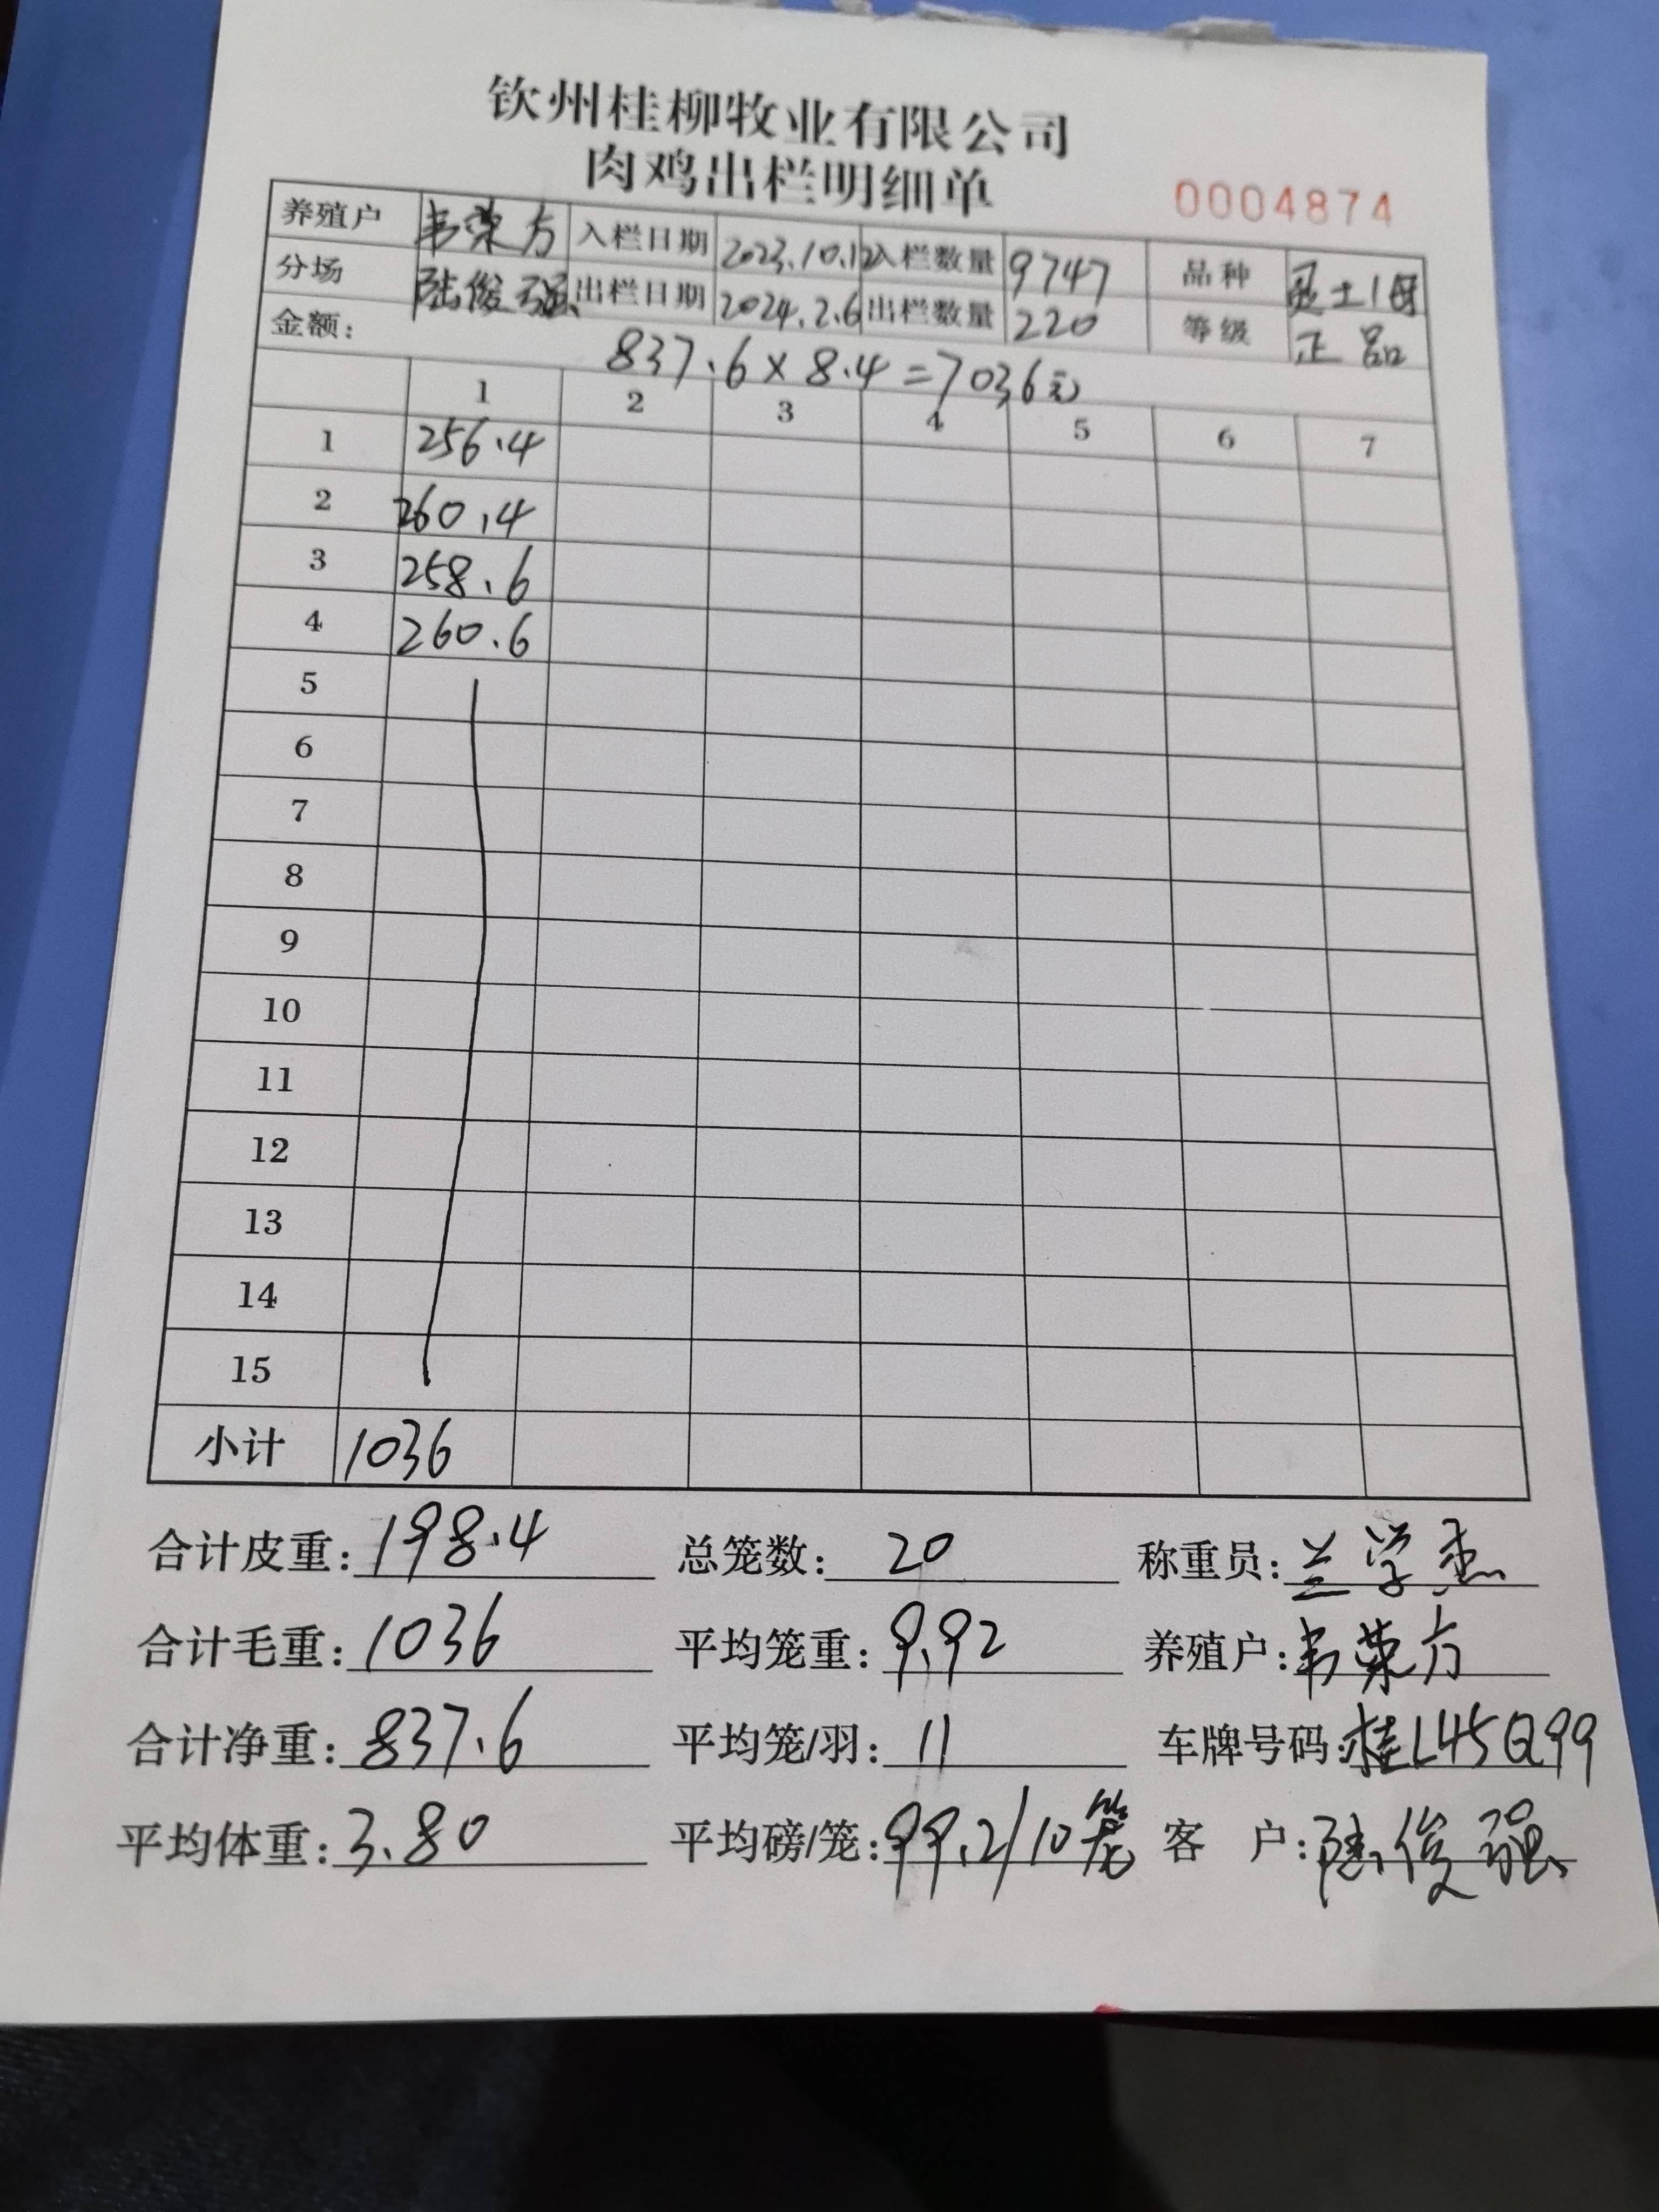 钦州桂柳牧业有限公司
肉鸡出栏明细单
0004874
养殖户 韦荣方 入栏日期 2023.10.12 入栏数量 9747 品种 土1母
分场 陆俊强 出栏日期 2024.2.6 出栏数量 220 等级 正品
金额: 837.6×8.4=7036元
1 2 3 4 5 6 7
1 256.4
2 260.4
3 258.6
4 260.6
5
6
7
8
9
10
11
12
13
14
15
小计 1036
合计皮重: 198.4 总笼数: 20 称重员: 兰学杰
合计毛重: 1036 平均笼重: 9.92 养殖户: 韦荣方
合计净重: 837.6 平均笼/羽: 11 车牌号码: 桂L45Q99
平均体重: 3.80 平均磅/笼: 99.2/10笼 客户: 陆俊强